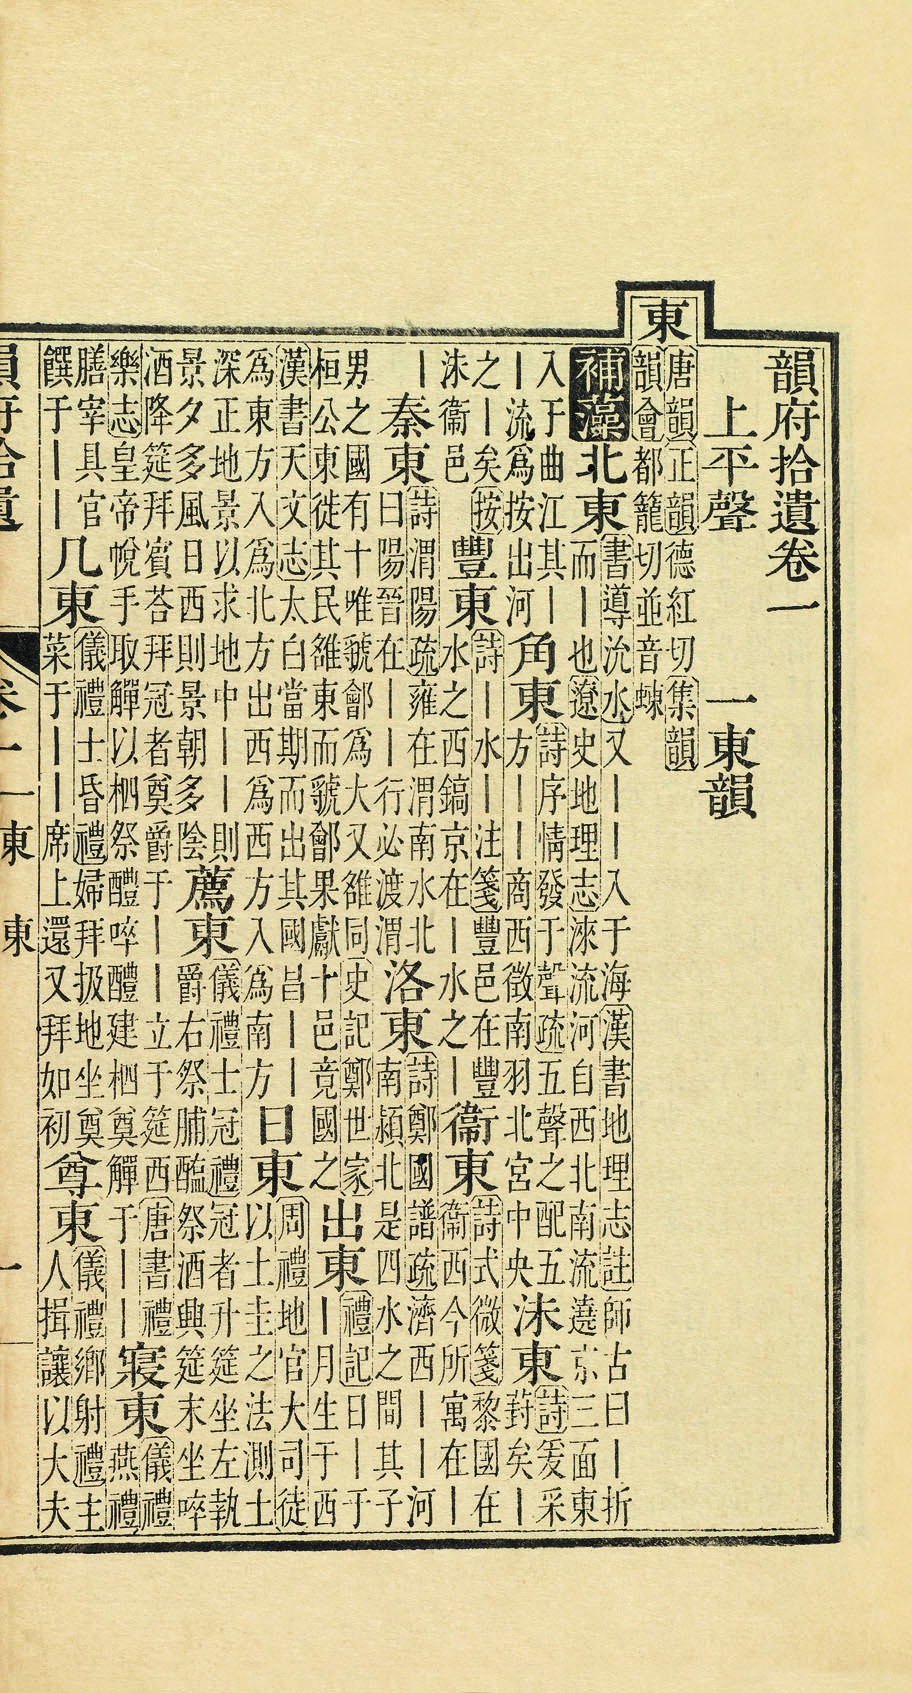 東
韻府拾遺卷一
上平聲　一東韻
唐韻正韻德紅切集韻
韻會都籠切並音蝀
補藻
北東
書導沇水又｜｜入于海漢書地理志註師古曰｜折
而｜也遼史地理志淶流河自西北南流遶京三面東
入于曲江其｜
｜流爲按出河｜
角東
詩序情發于聲疏五聲之配五
方｜｜商西徵南羽北宮中央
沬東
詩爰采
葑矣｜
之｜矣按
沬衞邑
豐東
詩｜水｜｜注箋豐邑在豐
水之西鎬京在｜水之｜
衞東
詩式微箋黎國在
衞西今所寓在｜
｜
秦東
詩渭陽疏雍在渭南水北
曰陽晉在｜｜行必渡渭
洛東
詩鄭國譜疏濟西｜｜河
南潁北是四水之間其子
男之國有十唯虢鄶爲大又雒同史記鄭世家
桓公東徙其民雒東而虢鄶果獻十邑竟國之
出東
禮記日｜于
｜月生于西
漢書天文志太白當期而出其國昌｜｜
爲東方入爲北方出西爲西方入爲南方
日東
周禮地官大司徒
以土圭之法測土
深正地景以求地中｜｜則
景夕多風日西則景朝多陰
薦東
儀禮士冠禮冠者升筵坐左執
爵右祭脯醢祭酒興筵末坐啐
酒降筵拜賓荅拜冠者奠爵于｜｜立于筵西唐書禮
樂志皇帝帨手取觶以柶祭醴啐醴建柶奠觶于｜｜
寢東
儀禮
燕禮
膳宰具官
饌于｜｜
几東
儀禮士昏禮婦拜扱地坐奠
菜于｜｜席上還又拜如初
尊東
儀禮鄉射禮主
人揖讓以大夫
韻府拾遺　卷一　一東　東　一